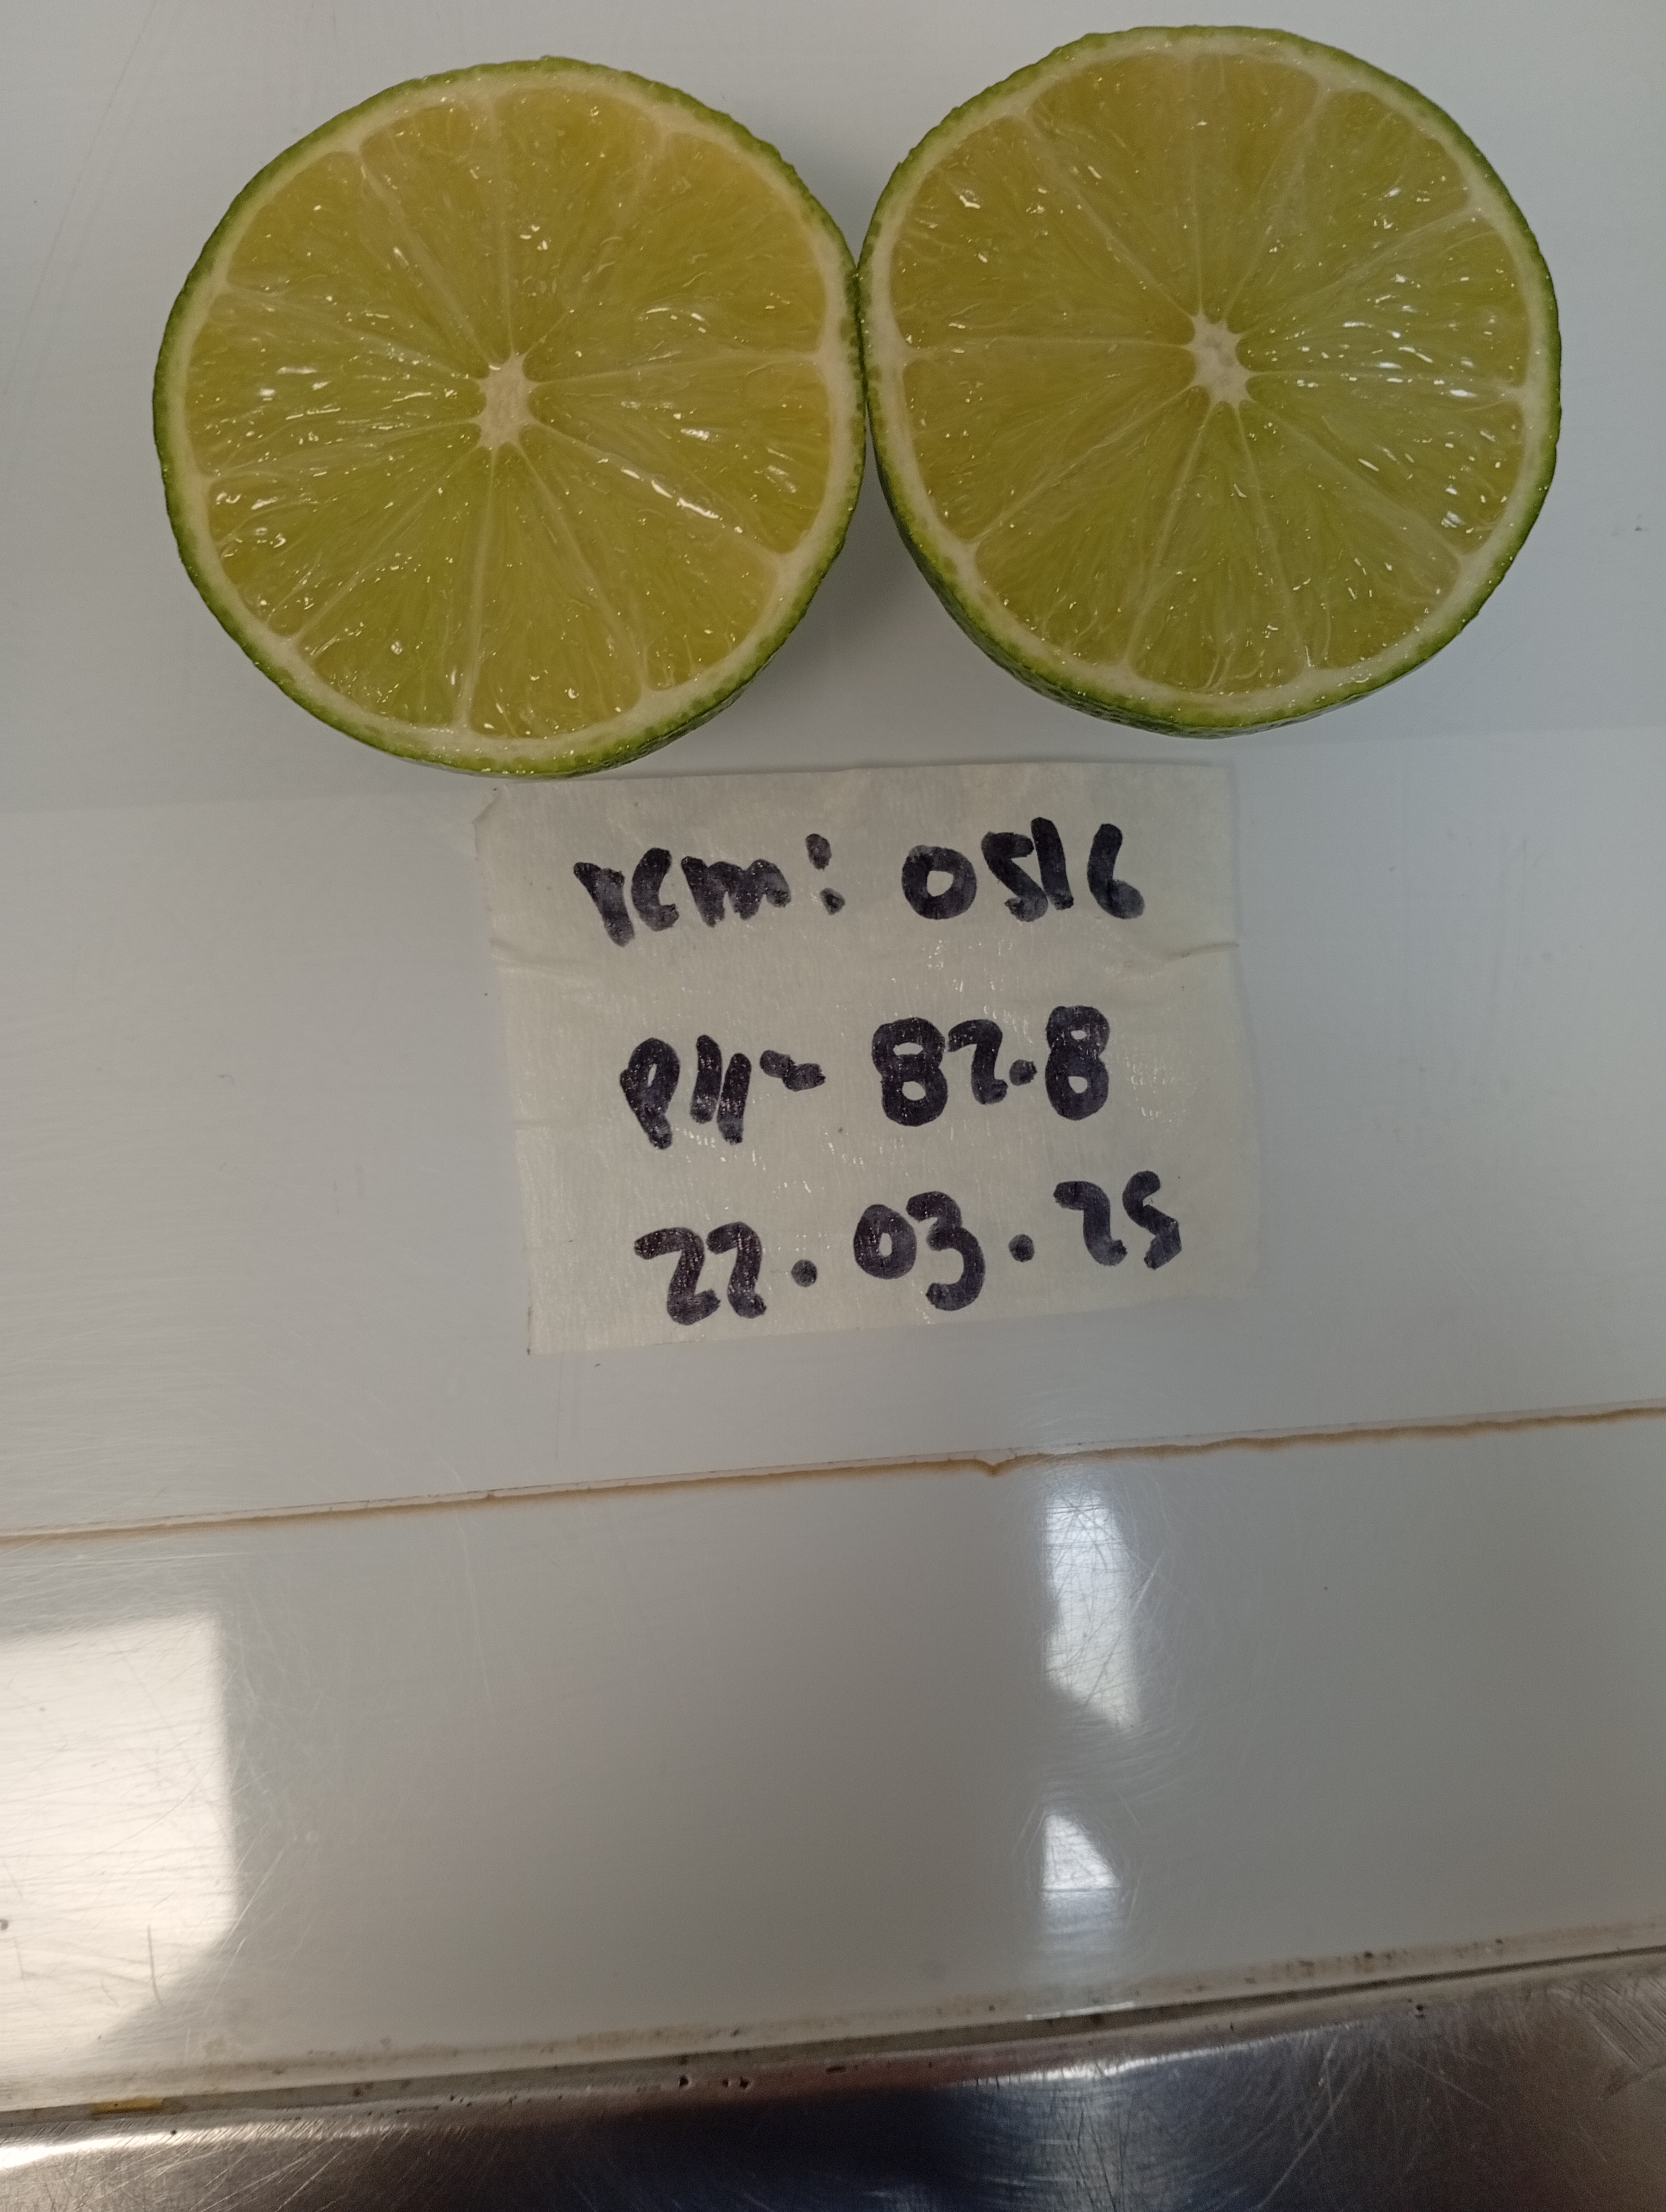 rem: 0516
PH- 82.8
22.03.25